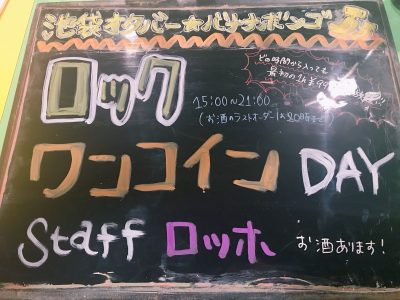 池袋オタバー★バナナボンゴ
どの時間から入っても
最初の1h¥99
ロック
15:00〜21:00
(お酒のラストオーダーは20時まで)
ワンコイン DAY
Staff ロッホ お酒あります!